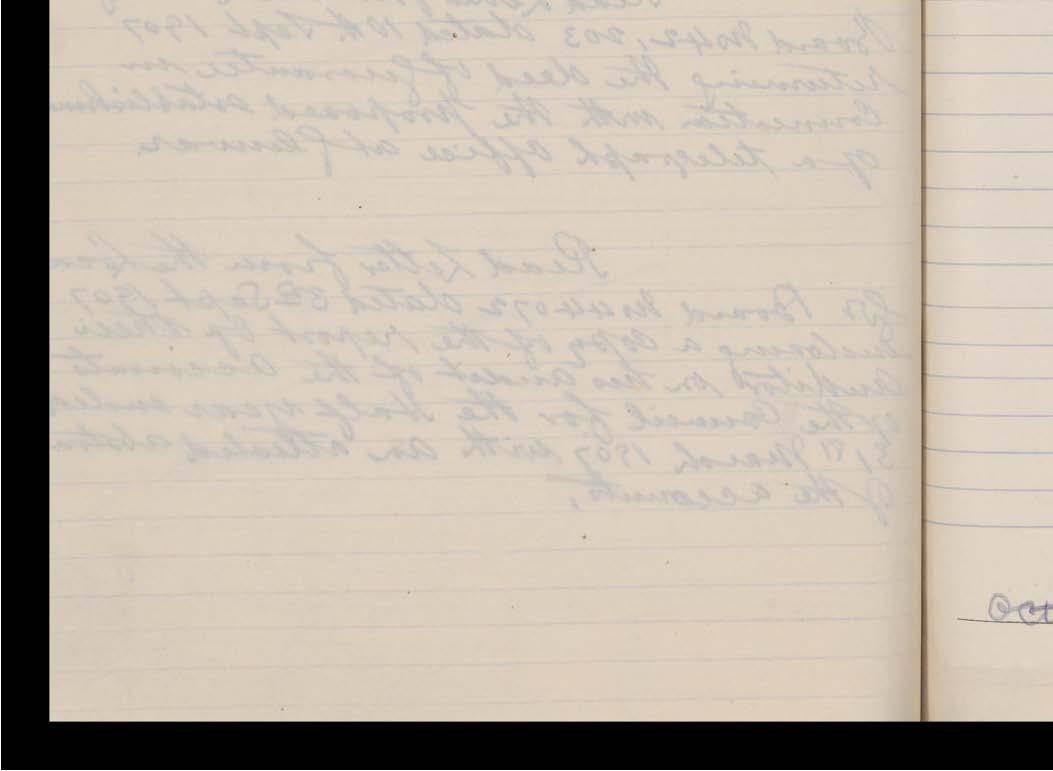 Board No 42,203 dated 10th Sept 1907
returning the deed of guarantee in
Connection with the proposed establishm
of a telegraph office at
Read Letter from the Loca
Gov Board No 44072 dated Sept 1907
Enclosing a copy of the report by their
Auditor on his audit of the accounts
of the Council for the half year ended
31st March 1907 with an attested abstra
of the accounts.
Oct